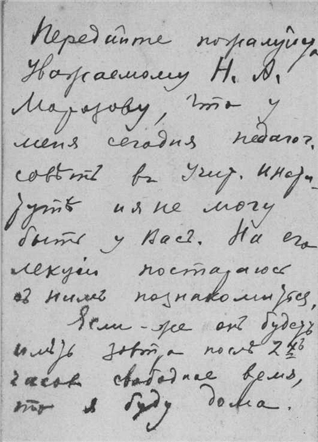 Передайте пожалуйста
Уважаемому Н. А.
Морозову, что у
меня сегодня педагог.
совѣтъ въ Учит. Инсти-
тутѣ и я не могу
быть у Васъ. На его
лекціи постараюсь
съ нимъ познакомиться.
Если-же онъ будетъ
имѣть завтра послѣ 2хъ
часовъ свободное время,
то я буду дома.